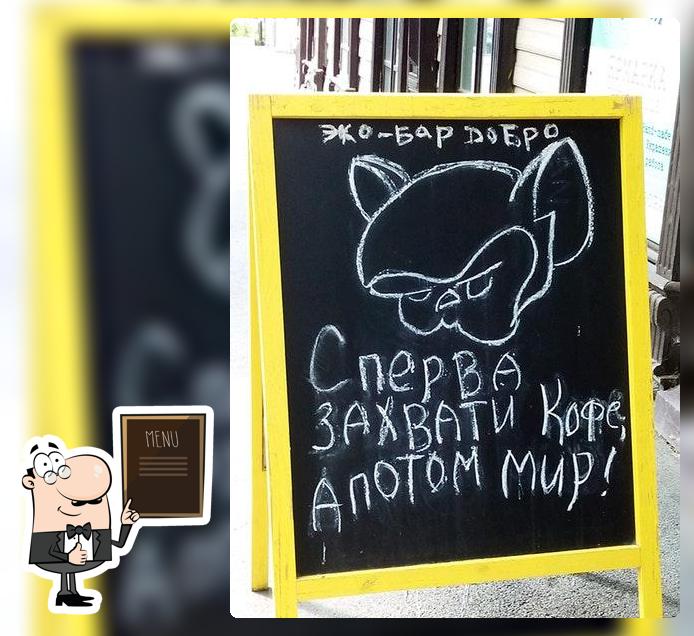 ЭКО-БАР ДОБРО
Сперва
захвати кофе,
а потом мир!
MENU